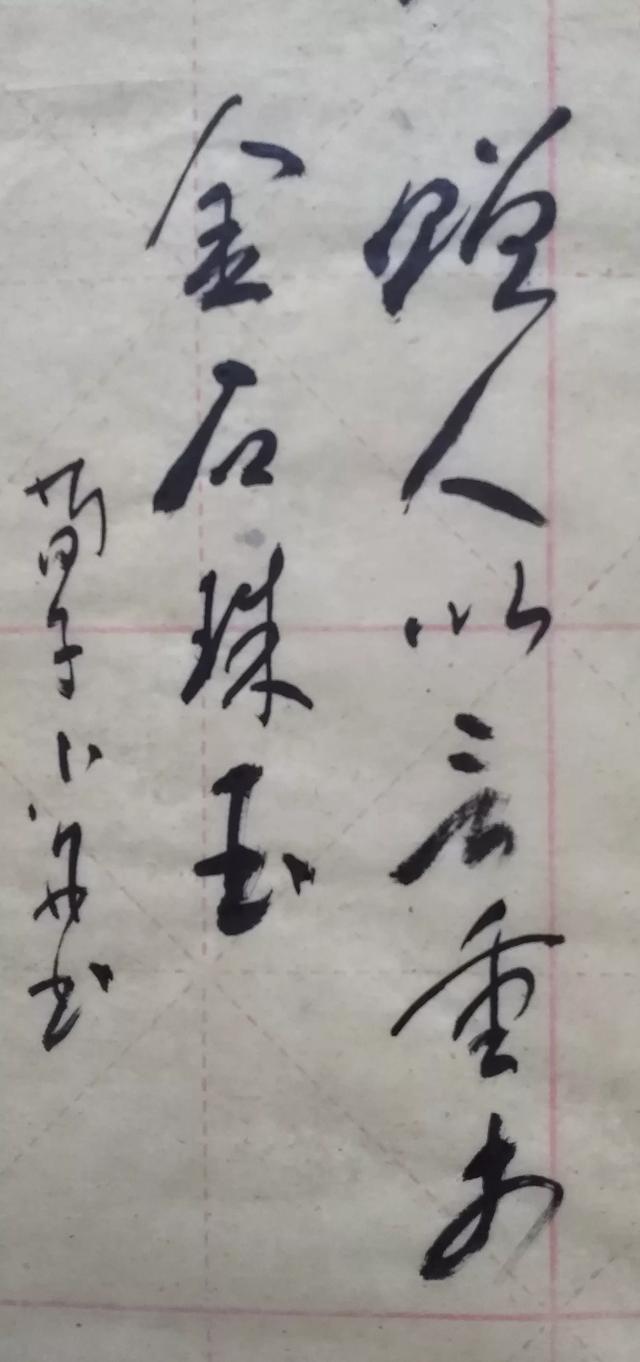 赠人以言重於
金石珠玉
荀子 书